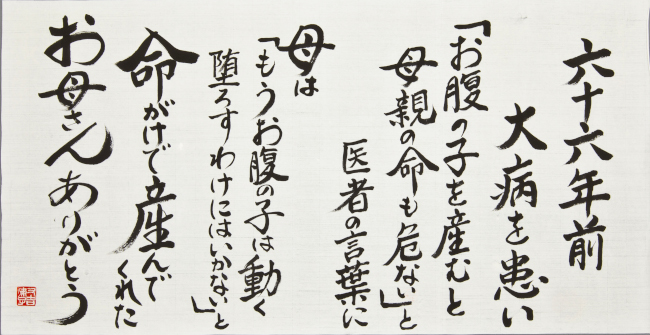 六十六年前
大病を患い
「お腹の子を産むと
母親の命も危ない」と
医者の言葉に
母は
「もうお腹の子は動く
堕ろすわけにはいかない」と
命がけで産んで
くれた
お母さんありがとう